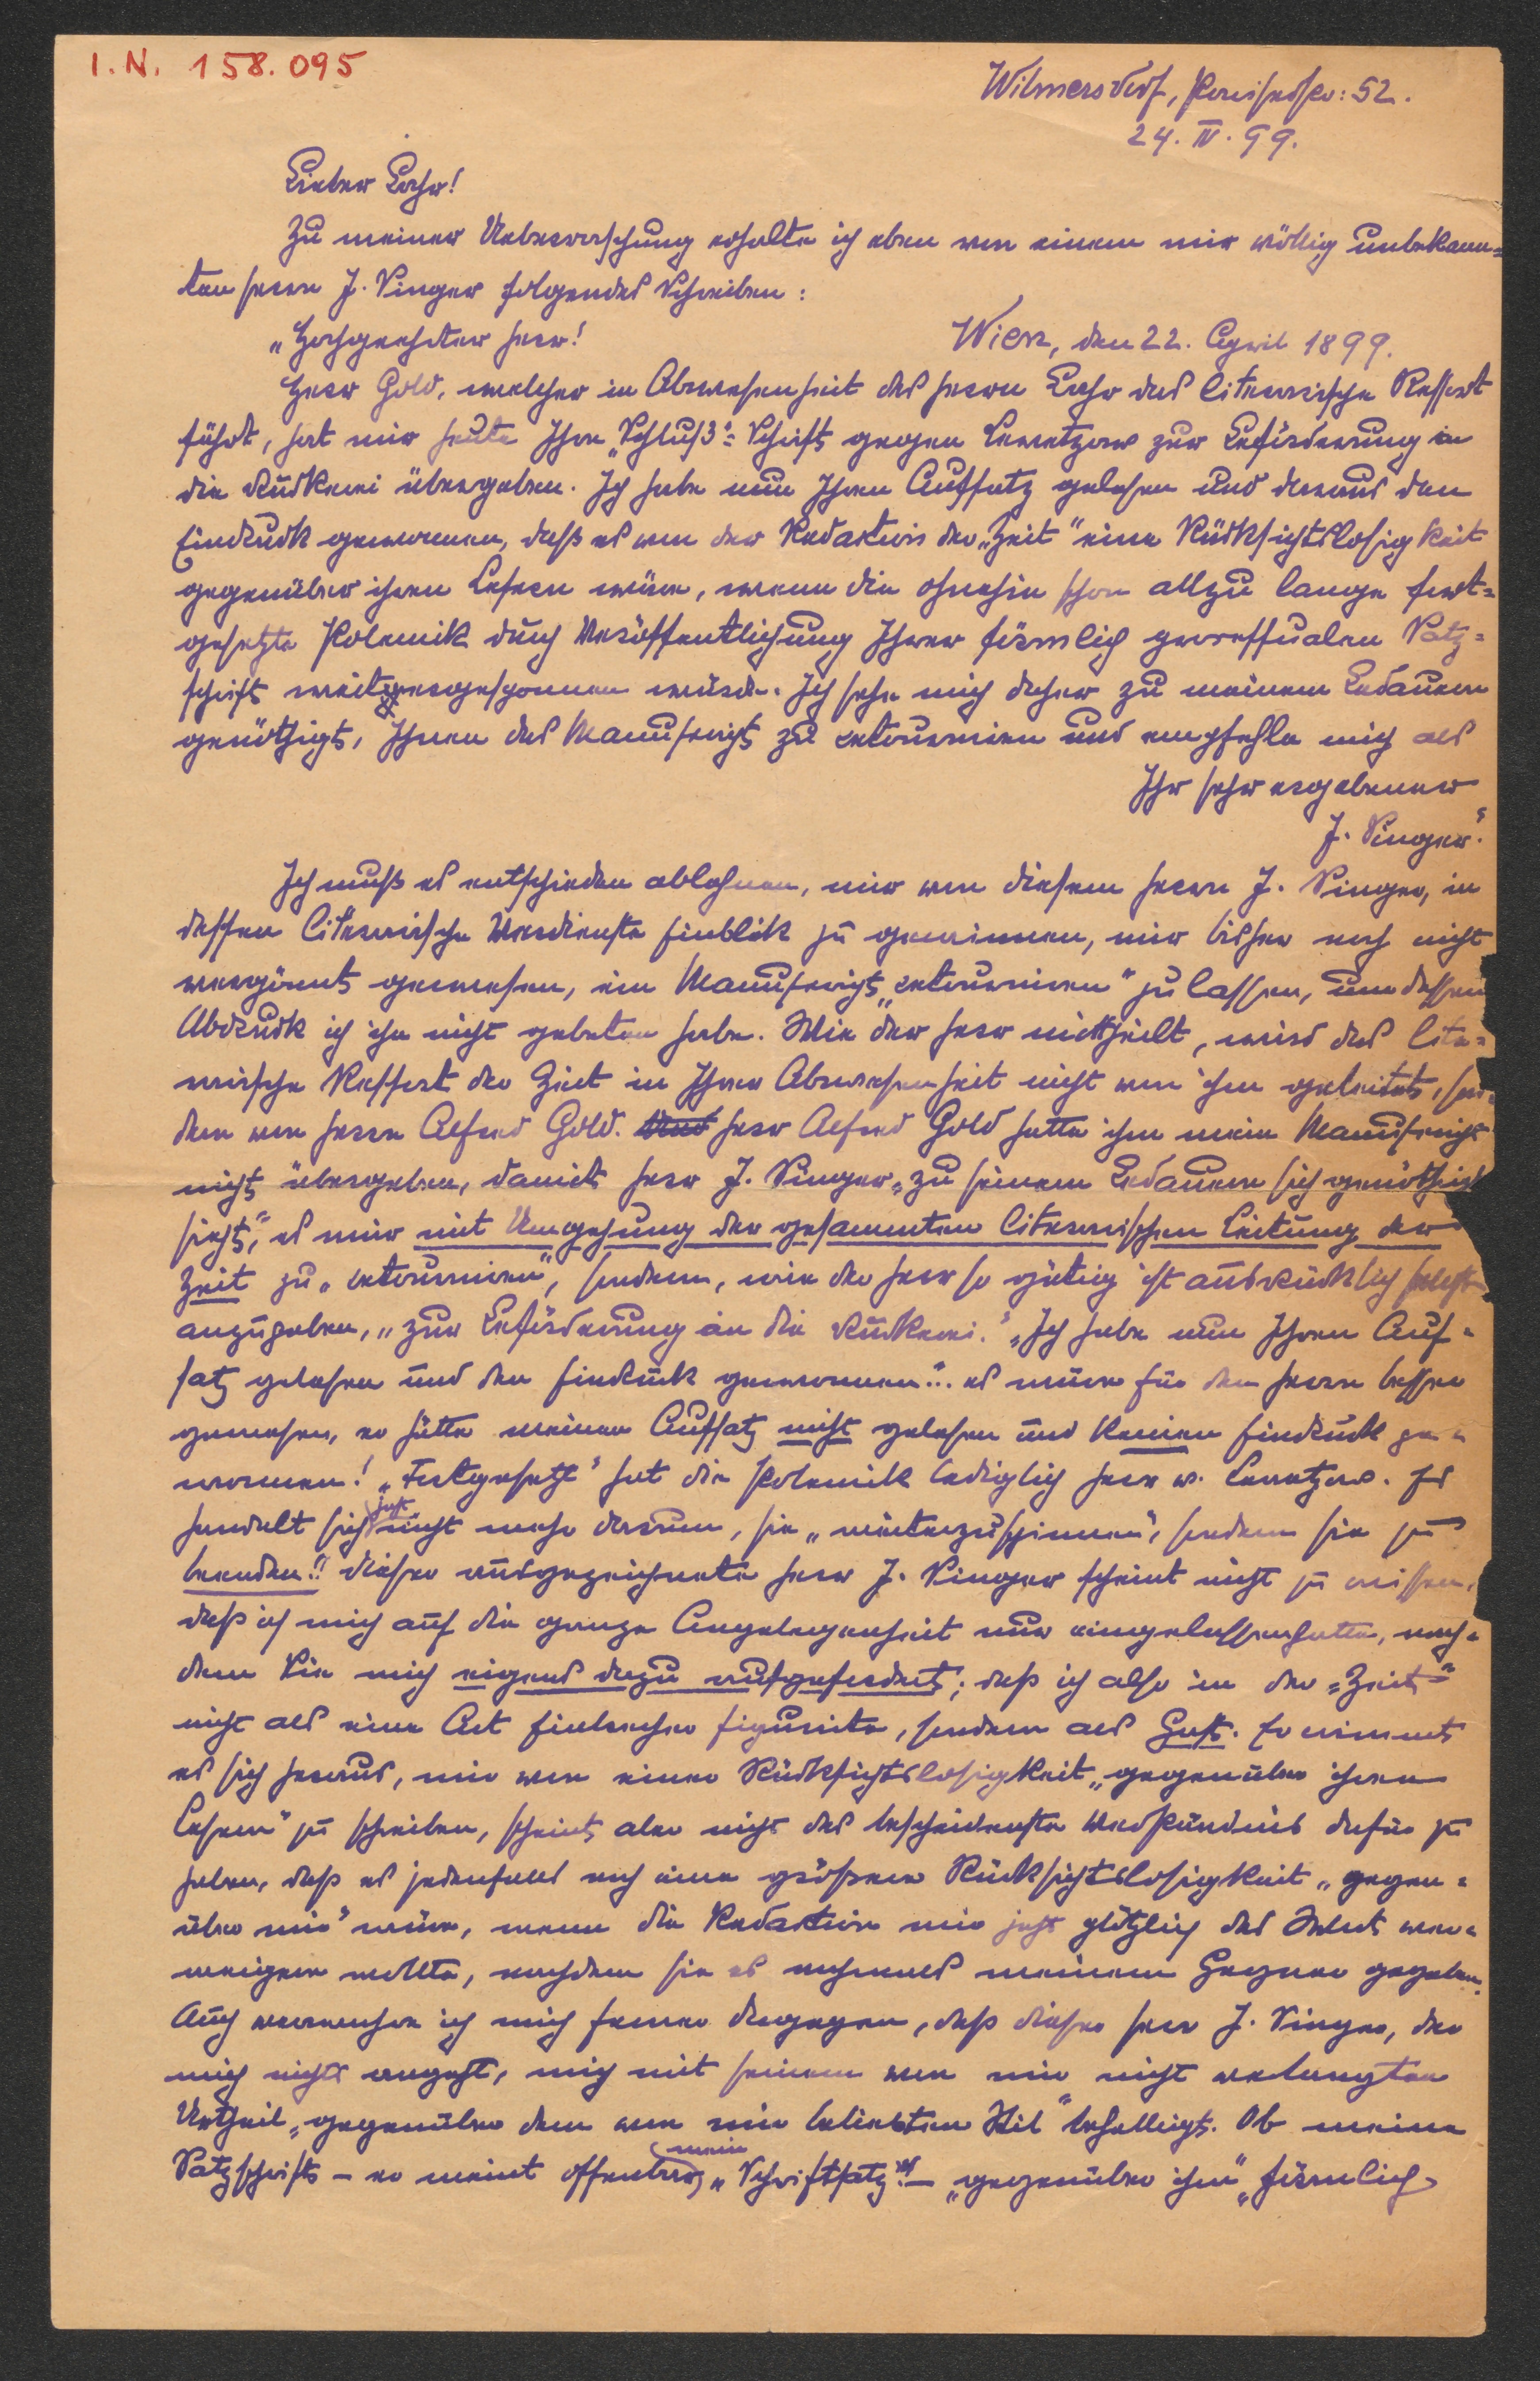 I. N. 158.095
Wilmersdorf, Pariserstr: 52.
24. IV. 99.
Lieber Bahr!
Zu meiner Ueberraschung erhalte ich eben von einem mir völlig unbekann=
ten Herrn J. Singer folgendes Schreiben:
„Hochgeehrter Herr! Wien, den 22. April 1899.
Herr Gold, welcher in Abwesenheit des Herrn Bahr das literarische Ressort
führt, hat mir heute Ihre „Schluß"=Schrift gegen Levetzow zur Beförderung in
die Druckerei übergeben. Ich habe nun Ihren Aufsatz gelesen und daraus den
Eindruck gewonnen, daß es von der Redaktion der „Zeit" eine Rücksichtslosigkeit
gegenüber ihren Lesern wäre, wenn die ohnehin schon allzu lange fort=
gesetzte Polemik durch Veröffentlichung Ihrer förmlich processualen Satz=
schrift weitergesponnen würde. Ich sehe mich daher zu meinem Bedauern
genöthigt, Ihnen das Manuscript zu retournieren und empfehle mich als
Ihr sehr ergebener
J. Singer."
Ich muß es entschieden ablehnen, mir von diesem Herrn J. Singer, in
dessen literarische Verdienste Einblick zu gewinnen, mir bisher noch nicht
vergönnt gewesen, ein Manuscript „retournieren" zu lassen, um dessen
Abdruck ich ihn nicht gebeten habe. Wie der Herr mittheilt, wird das lite=
rarische Ressort der Zeit in Ihrer Abwesenheit nicht von ihm geleitet, son=
dern von Herrn Alfred Gold. Herr Alfred Gold hatte ihm mein Manuscript
nicht übergeben, damit Herr J. Singer „zu seinem Bedauern sich genöthigt
sieht", es mir mit Umgehung der gesammten literarischen Leitung der
Zeit zu „retournieren", sondern, wie der Herr so gütig ist ausdrücklich selbst
anzugeben, „zur Beförderung in die Druckerei." „Ich habe nun Ihren Auf=
satz gelesen und den Eindruck gewonnen".. es wäre für den Herrn besser
gewesen, er hätte meinen Aufsatz nicht gelesen und keinen Eindruck ge=
wonnen! „Fortgesetzt" hat die Polemik lediglich Herr v. Levetzow. Es
handelt sich jetzt nicht mehr darum, sie „weiterzuspinnen", sondern sie zu
beenden!! Dieser ausgezeichnete Herr J. Singer scheint nicht zu wissen,
daß ich mich auf die ganze Angelegenheit nur eingelassen hatte, nach=
dem Sie mich eigens dazu aufgefordert; daß ich also in der „Zeit"
nicht als eine Art Einbrecher figurirte, sondern als Gast. Er nimmt
es sich heraus, mir von einer Rücksichtslosigkeit „gegenüber ihren
Lesern" zu schreiben, scheint aber nicht das bescheidenste Verständnis dafür zu
haben, daß es jedenfalls noch eine größere Rücksichtslosigkeit „gegen=
über mir" wäre, wenn die Redaktion mir jetzt plötzlich das Wort ver=
weigern wollte, nachdem sie es nochmals meinem Gegner gegeben.
Auch verwahre ich mich ferner dagegen, daß dieser Herr J. Singer, der
mich nichts angeht, mich mit seinem von mir nicht verlangten
Urtheil „gegenüber dem von mir beliebten Stil" behelligt. Ob meine
Satzschrift – er meint offenbar, mein „Schriftsatz"! – „gegenüber ihm" „förmlich